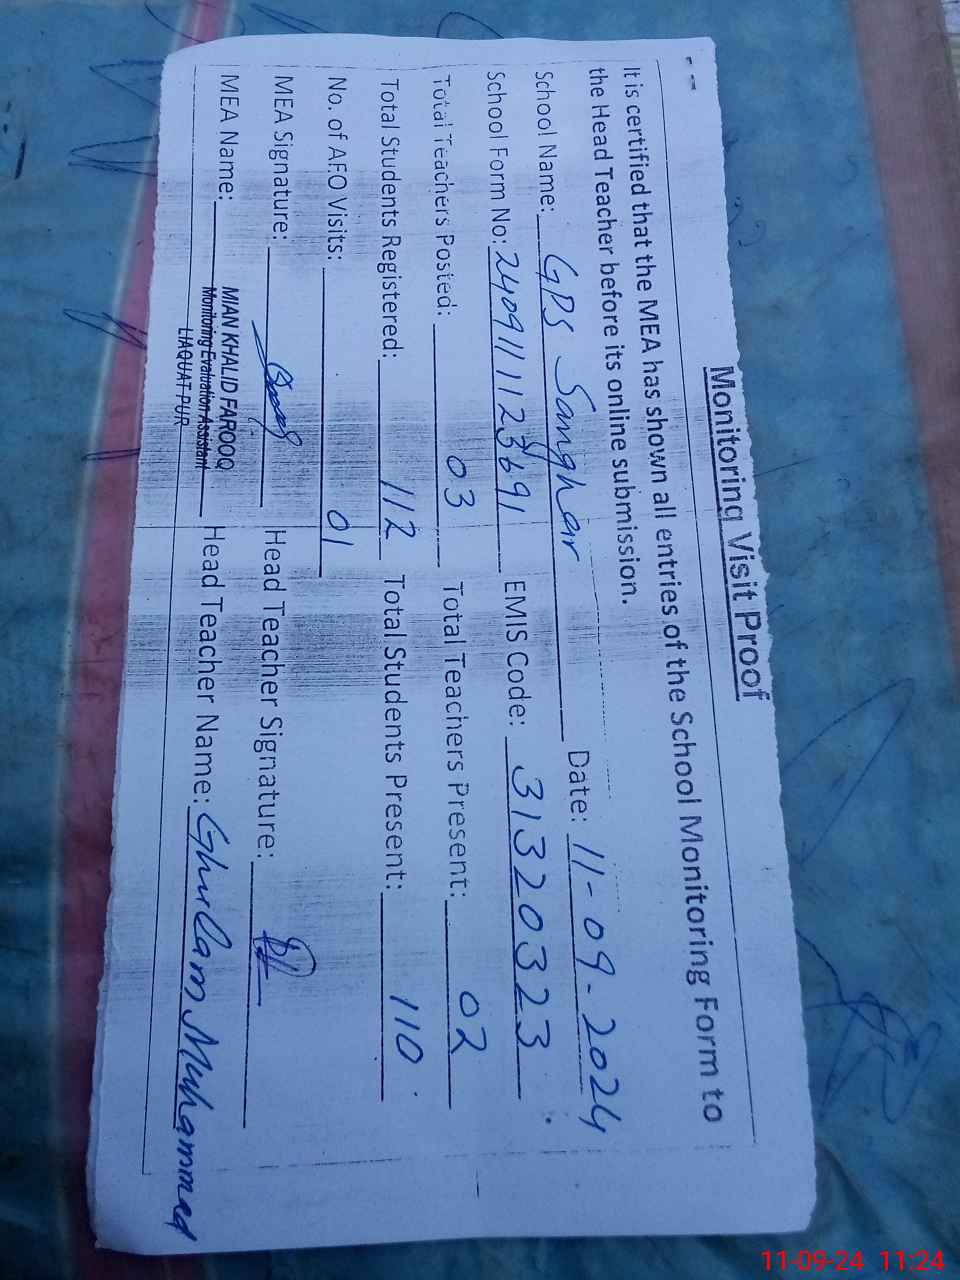 Monitoring Visit Proof
It is certified that the MEA has shown all entries of the School Monitoring Form to
the Head Teacher before its online submission.
School Name: GPS Sanghar Date: 11-09-2024
School Form No: 2409111123691 EMIS Code: 31320323
Total Teachers Posted: 03 Total Teachers Present: 02
Total Students Registered: 112 Total Students Present: 110
No. of AFO Visits: 01
MEA Signature: Head Teacher Signature:
MEA Name: MIAN KHALID FAROOQ Head Teacher Name: Ghulam Muhammad
Monitoring Evaluation Assistant
LIAQUAT PUR
11-09-24 11:24